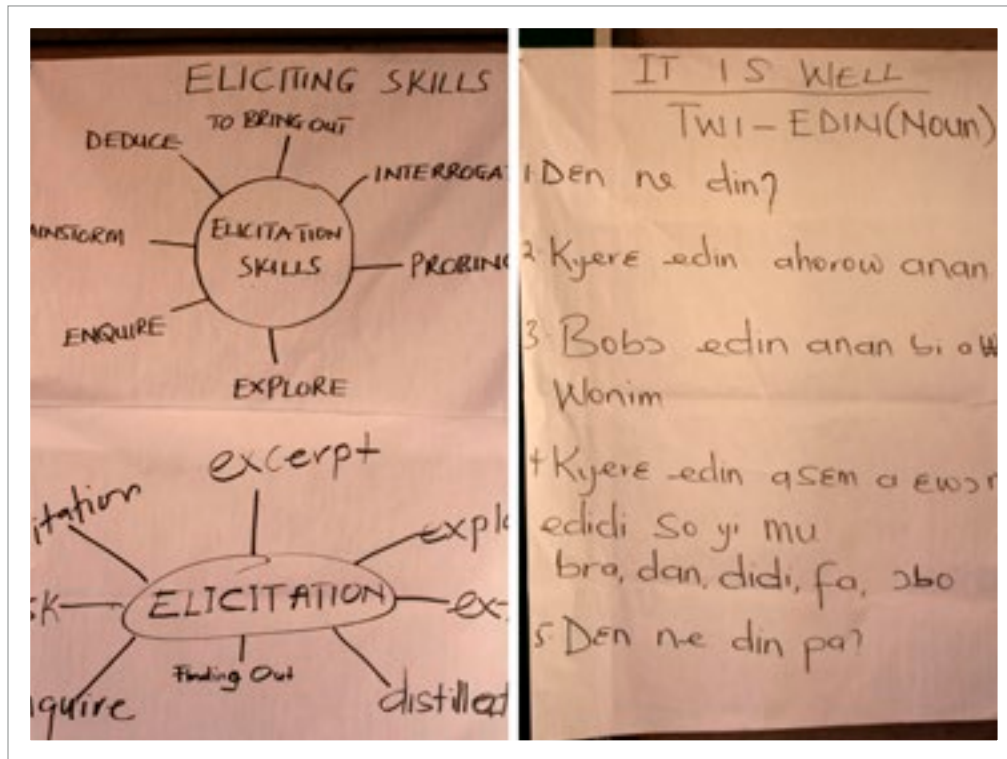 ELICITING SKILLS
TO BRING OUT
DEDUCE
INTERROGA
AINSTORM
ELICITATION
SKILLS
PROBING
ENQUIRE
EXPLORE
excerpt
itation
explo
ELICITATION
sk
ex-
Finding Out
quire
distilled
IT IS WELL
TWI - EDIN (Noun)
1. Dɛn ne din?
2. Kyerɛ edin ahorow anan
3. Bobɔ edin anan bi a
Wonim
4 Kyerɛ edin asɛm a ɛwɔ
edidi so yi mu
bra, dan, didi, fa, ɔbo
5. Dɛn ne din pa?